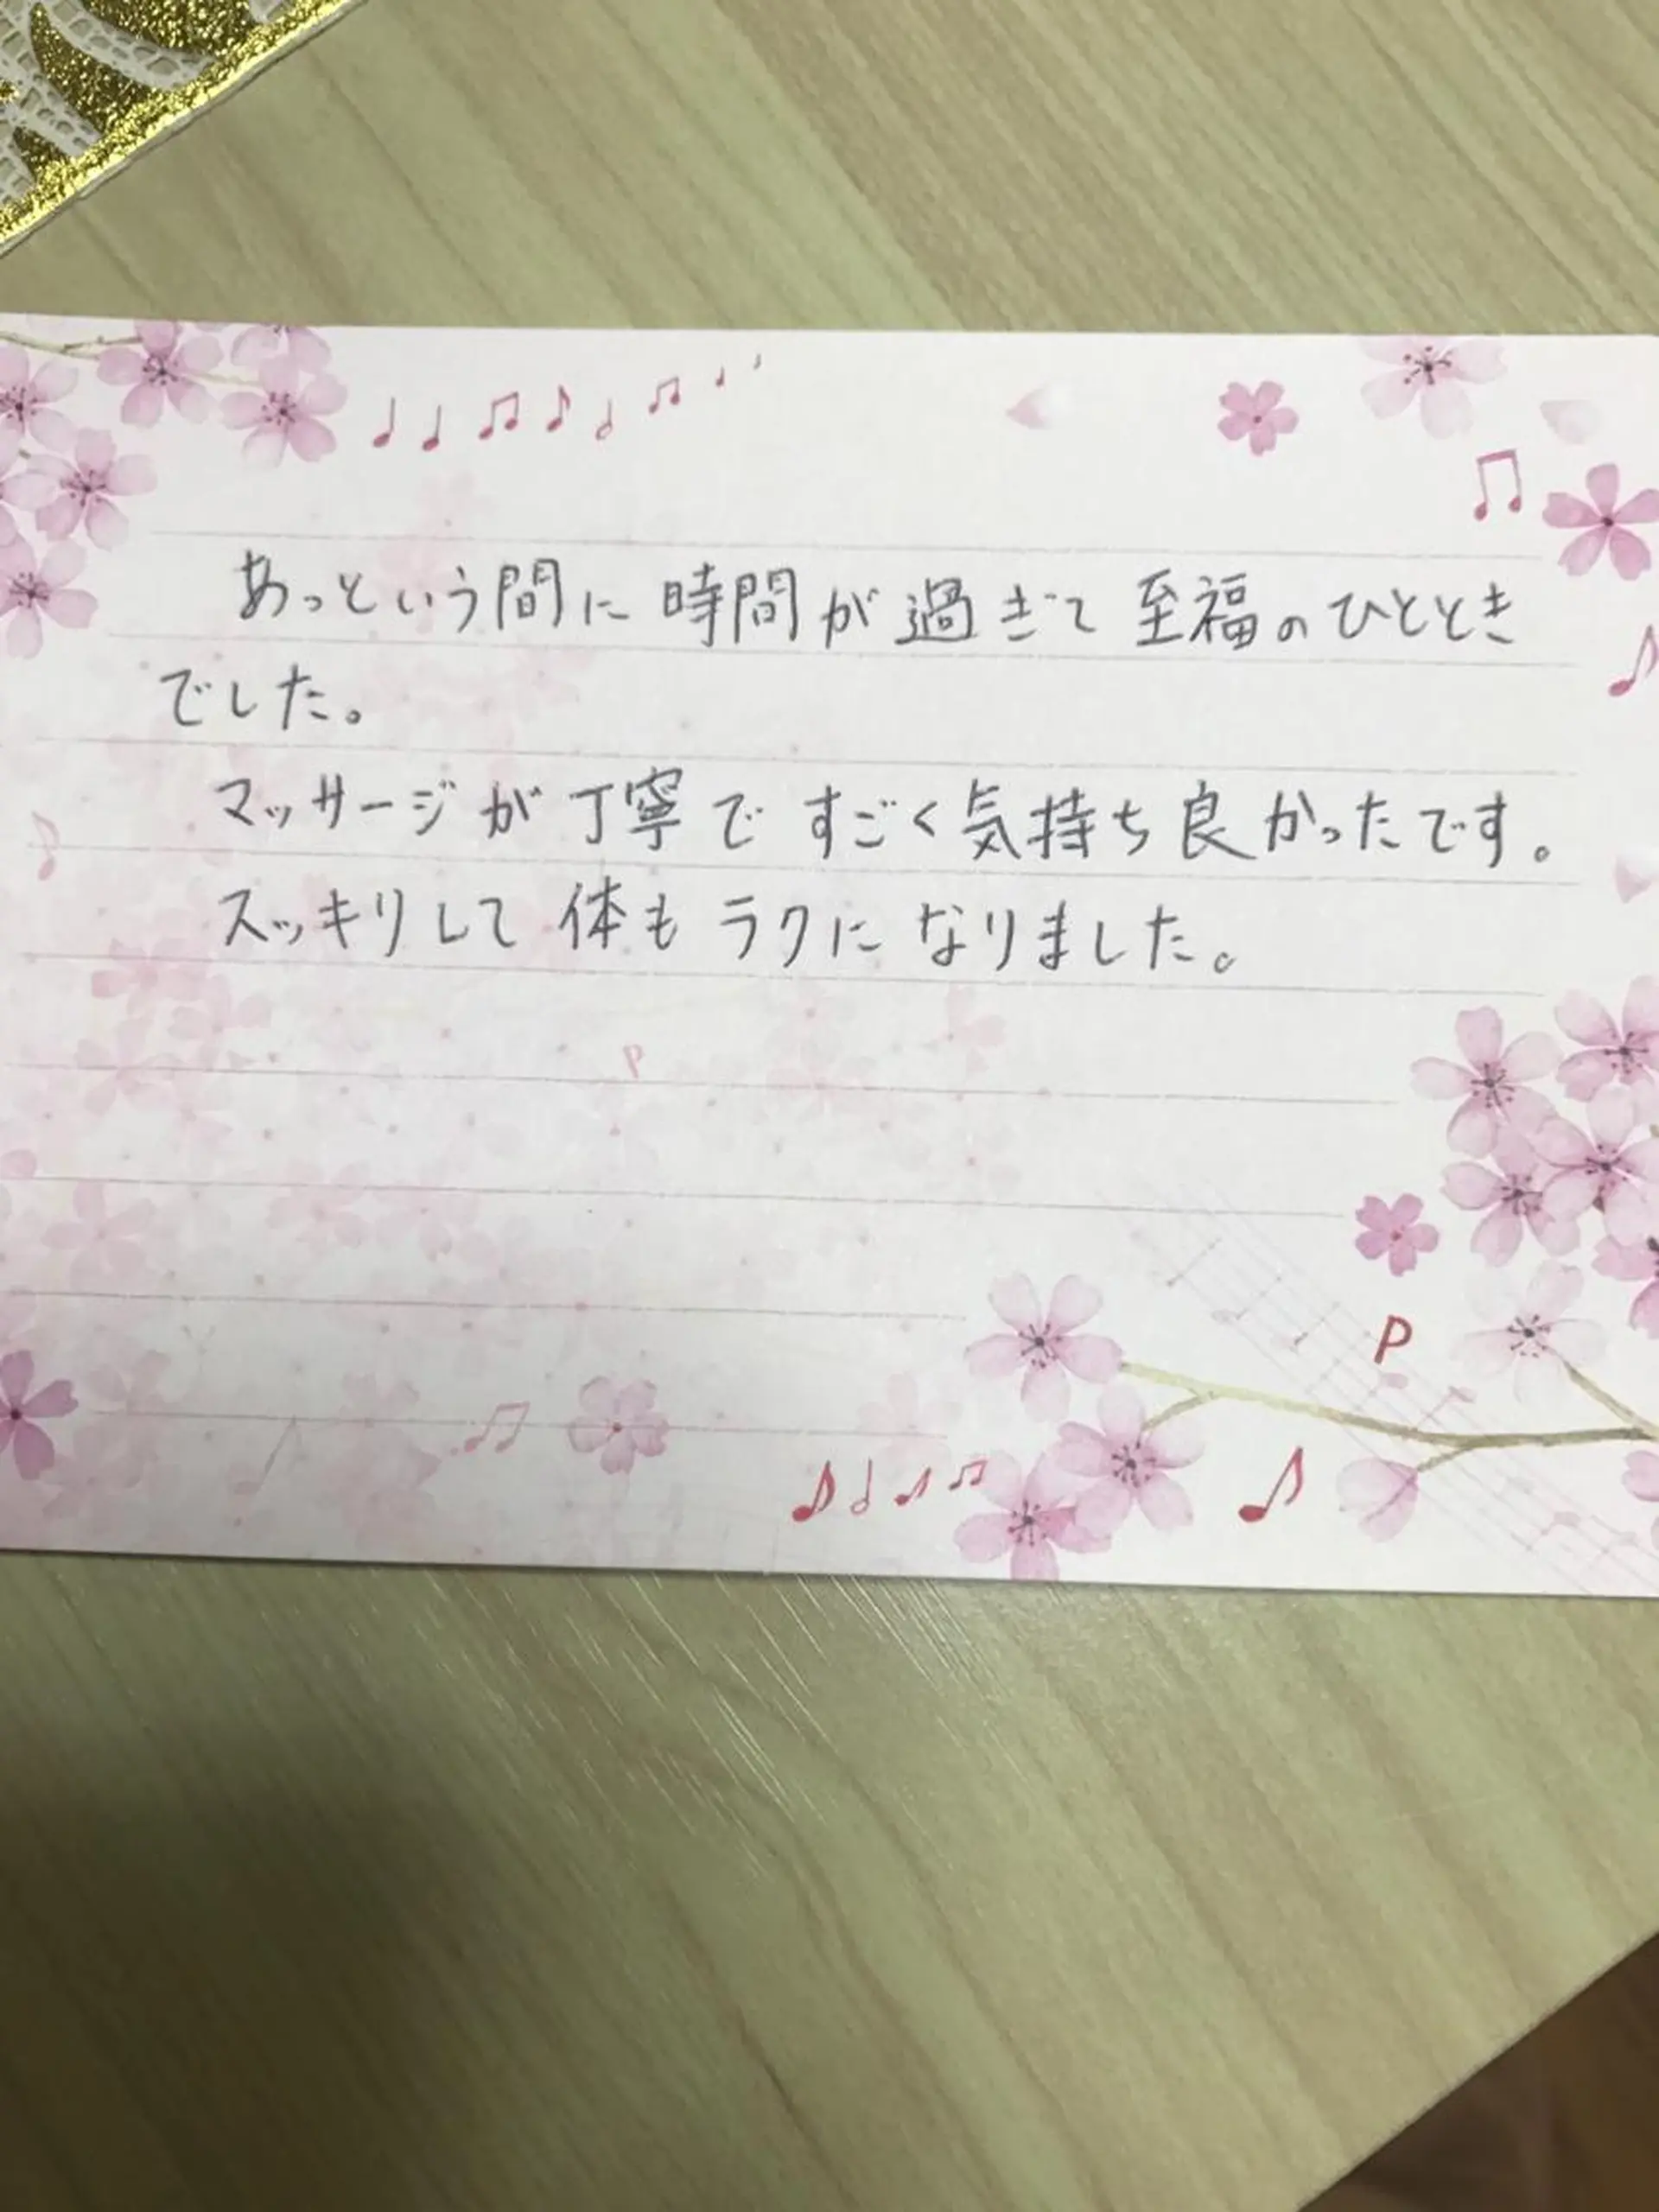 あっという間に時間が過ぎて至福のひととき
でした。
マッサージが丁寧ですごく気持ち良かったです。
スッキリして体もラクになりました。